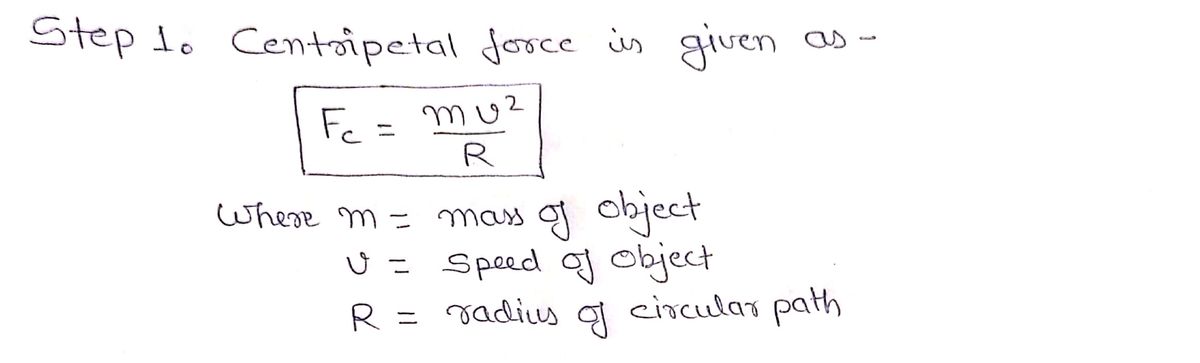 Step 1. Centripetal force is given as -
Fc = mv²/R
where m = mass of object
v = speed of object
R = radius of circular path